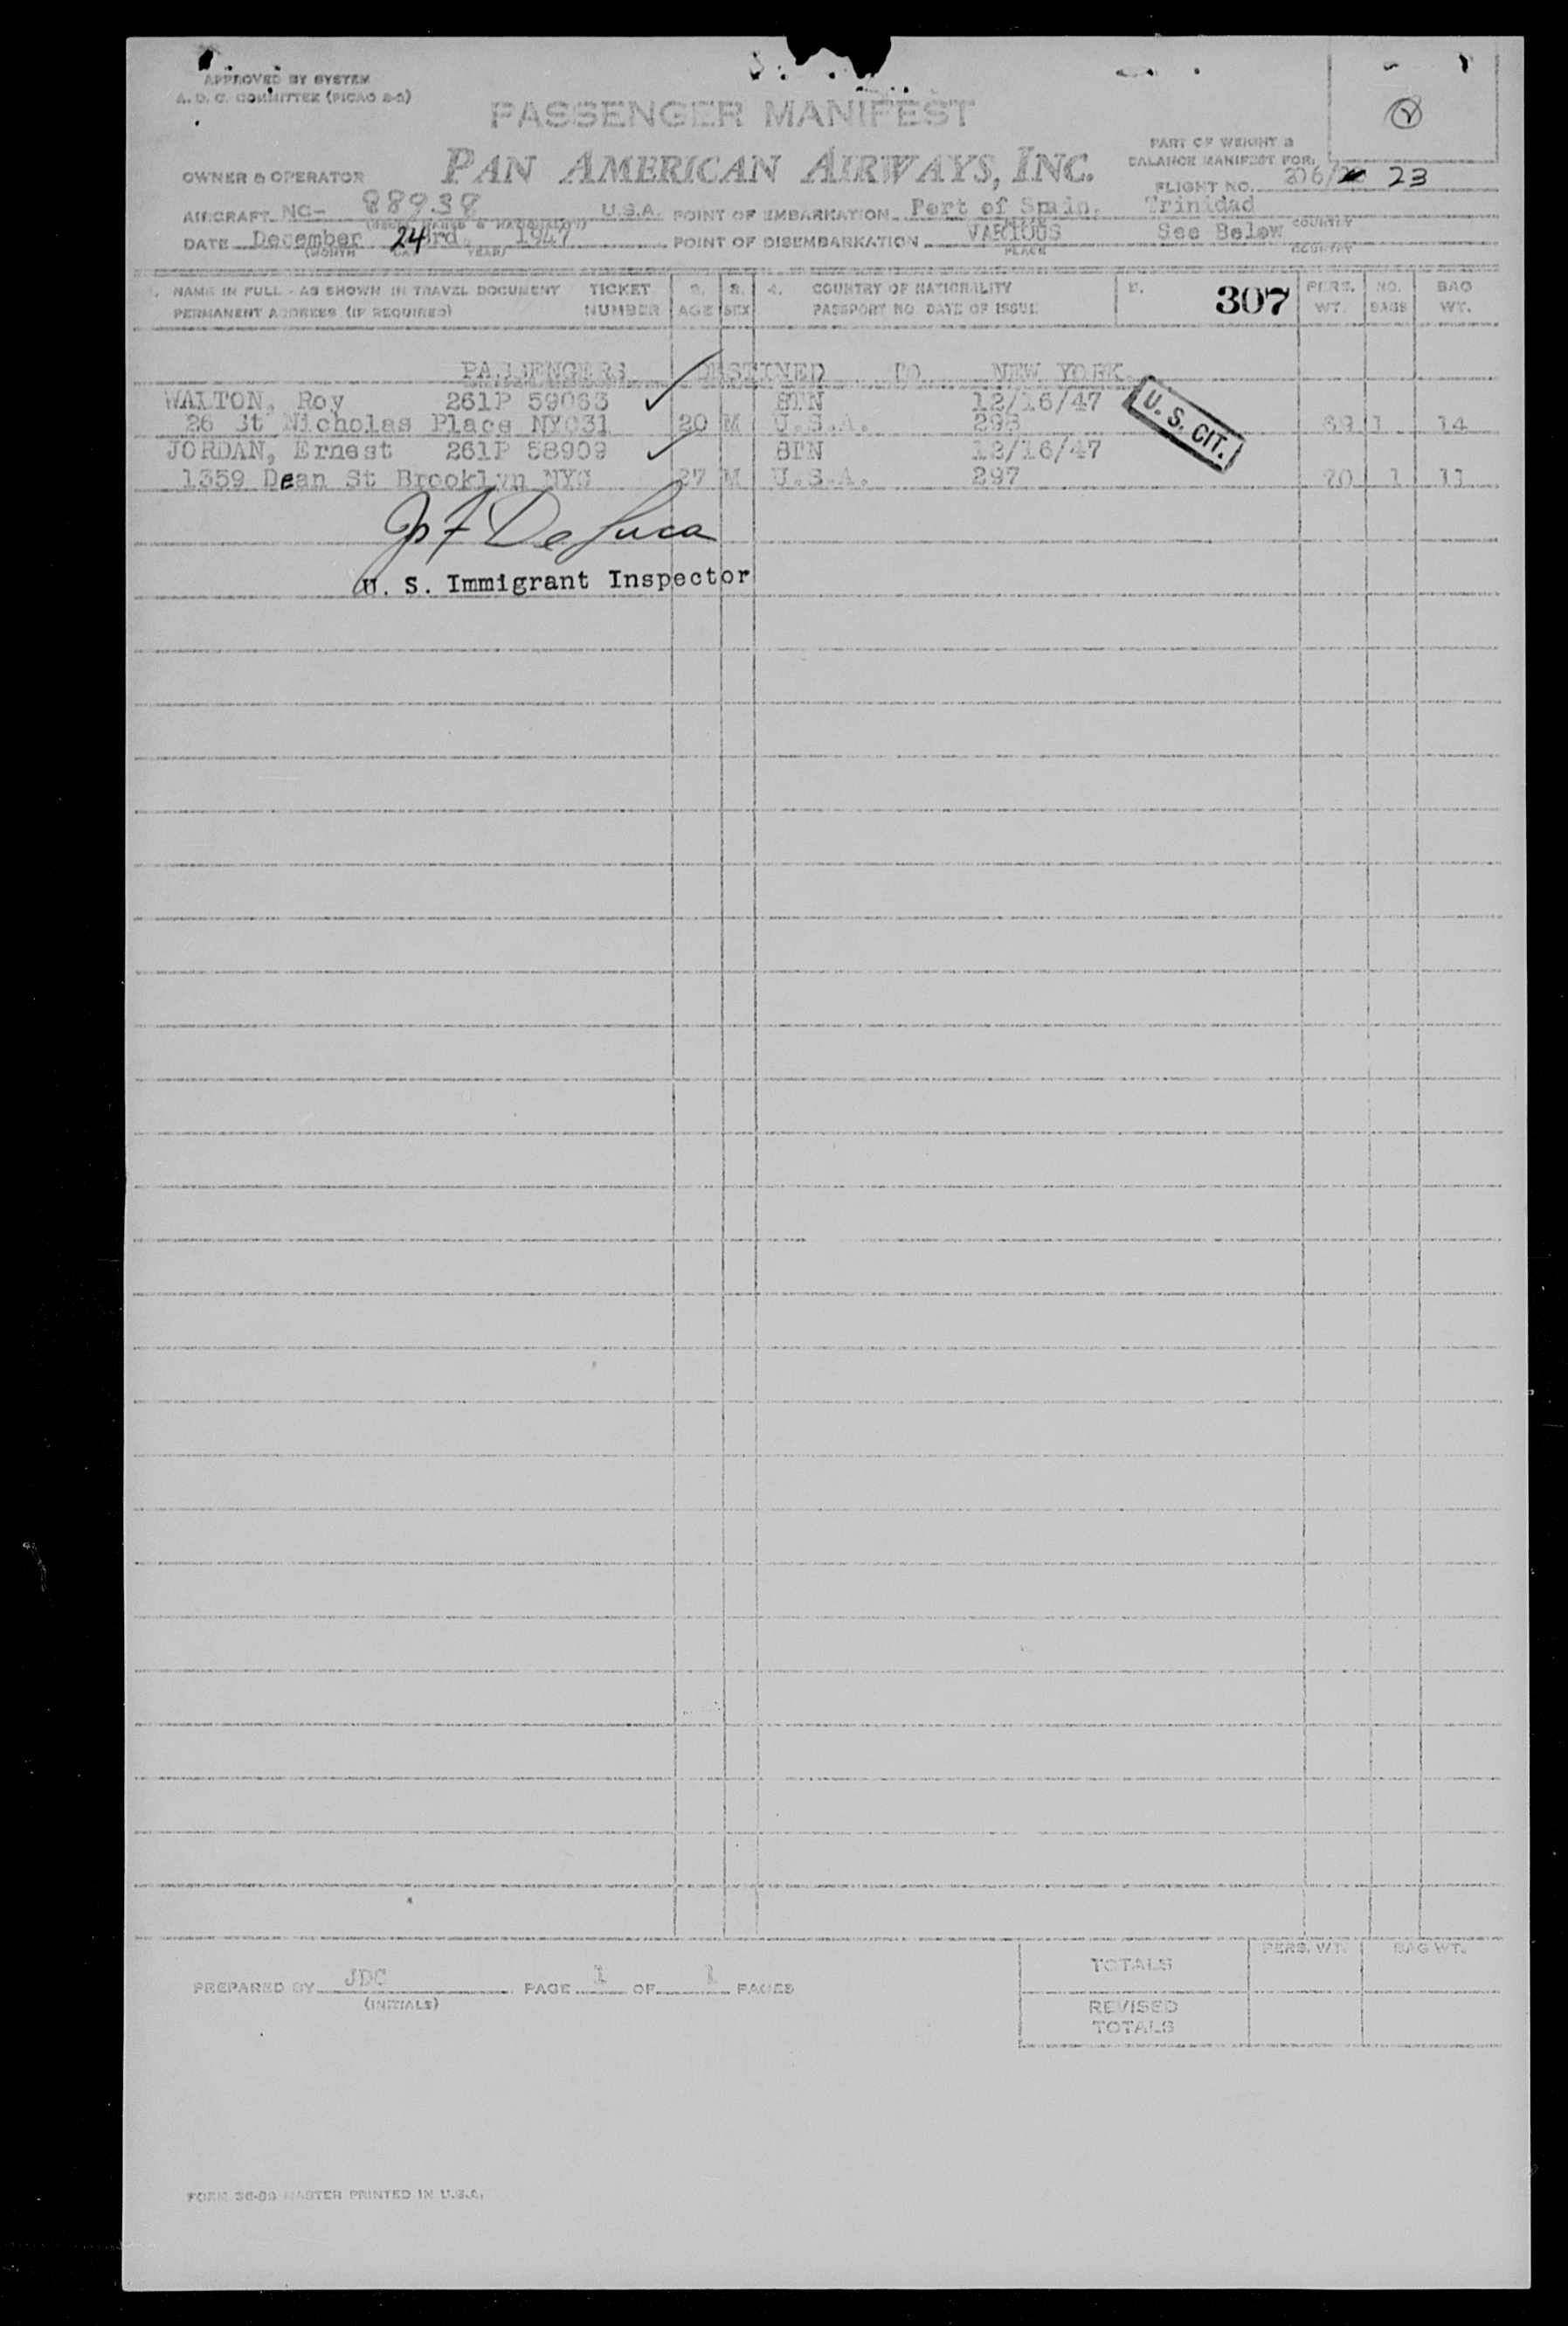 APPROVED BY SYSTEM
A. O. C. COMMITTEE (PICAO 2-3)
PASSENGER MANIFEST
PAN AMERICAN AIRWAYS, INC.
PART OF WEIGHT &
BALANCE MANIFEST FOR:
OWNER & OPERATOR
FLIGHT NO. 206/ 23
AIRCRAFT NC- 88938 U.S.A. POINT OF EMBARKATION Port of Spain, Trinidad
COUNTRY
DATE December 24 rd. 1947 POINT OF DISEMBARKATION VARIOUS See Below
(MONTH DAY YEAR) PLACE COUNTRY
NAME IN FULL - AS SHOWN IN TRAVEL DOCUMENT TICKET 2. 3. 4. COUNTRY OF NATIONALITY 5. 307 PERS. NO. BAG
PERMANENT ADDRESS (IF REQUIRED) NUMBER AGE SEX PASSPORT NO. DATE OF ISSUE WT. BAGS WT.
PASSENGERS DESTINED TO NEW YORK.
WALTON, Roy 261P 59063 BTN 12/16/47
26 St Nicholas Place NYC31 20 M U.S.A. 1 14
JORDAN, Ernest 261P 58909 BTN 12/16/47
1359 Dean St Brooklyn NYC 27 M U.S.A. 297 70 1 11
U. S. CIT.
De Luca
U. S. Immigrant Inspector
PREPARED BY JDC PAGE 1 OF 1 PAGES
(INITIALS)
PERS. WT. BAG WT.
TOTALS
REVISED
TOTALS
FORM 36-89 MASTER PRINTED IN U.S.A.